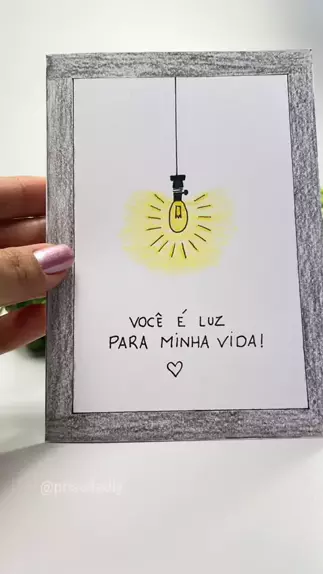 VOCÊ É LUZ
PARA MINHA VIDA!